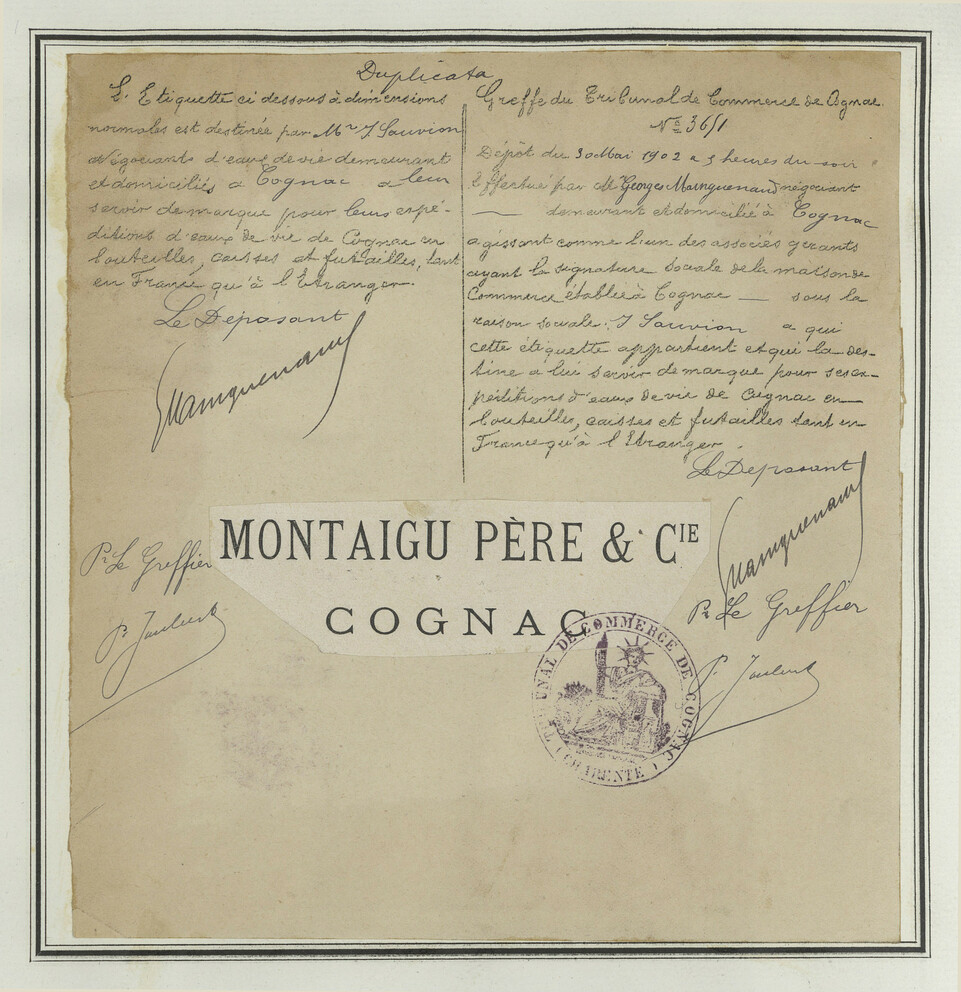 Duplicata
L'Etiquette ci dessous à dimensions
normales est destinée par Mr J Sauvion
Négociants d'eaux de vie demeurant
et domiciliés a Cognac a leur
servir de marque pour leurs expé-
ditions d'eaux de vie de Cognac en
bouteilles, caisses et futailles, tant
en France qu'à l'Etranger.
Le Deposant
Mainguenaud
Greffe du Tribunal de Commerce de Cognac.
No 3651
Dépôt du 30 Mai 1902 a 5 heures du soir
Effectué par Georges Mainguenaud négociant
— demeurant et domicilié à Cognac
agissant comme l'un des associés gérants
ayant la signature sociale de la maison de
Commerce établie à Cognac — sous la
raison sociale: J Sauvion a qui
cette étiquette appartient et qui la des-
tine a lui servir de marque pour ses ex-
péditions d'eaux de vie de Cognac en
bouteilles, caisses et futailles tant en
France qu'à l'Etranger.
Le Deposant
Mainguenaud
Pr Le Greffier
P. Joubert
MONTAIGU PÈRE & CIE
COGNAC
Pr Le Greffier
P. Joubert
TRIBUNAL DE COMMERCE DE COGNAC
CHARENTE